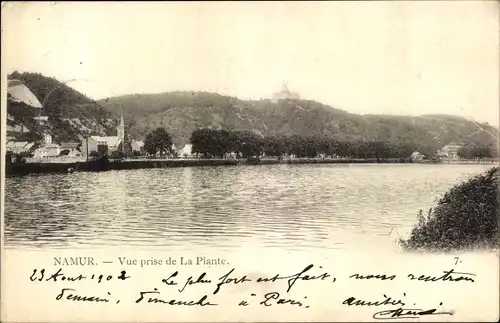 NAMUR. — Vue prise de La Plante.
7.
23 Aout 1902 Le plus fort est fait, nous rentrons
demain, dimanche à Paris amitiés